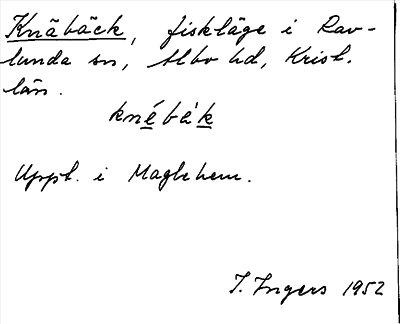 Knäbäck, fiskläge i Rav-
lunda sn, Albo hd, Krist.
län.
knébȧ́k
Uppt. i Maglehem.
I. Ingers 1952